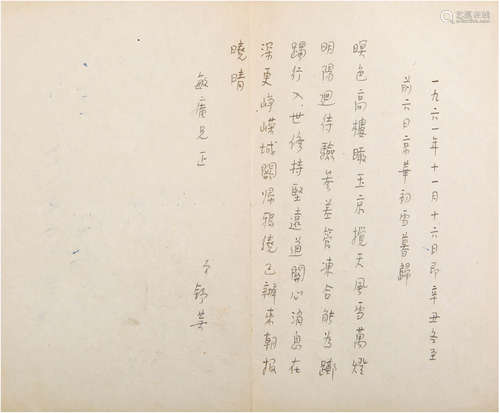 一九六一年十一月十六日即辛丑冬至
前六日京華初雪暮歸
暝色高樓瞰玉京攪天風雪萬燈
明陽迴待驗參差管凍合能為躑
躅行入世修持堅遠道關心消息在
深更崢嶸城闕歸鴉繞已辦來朝報
曉晴
敏庵兄正
弟 鍾芸